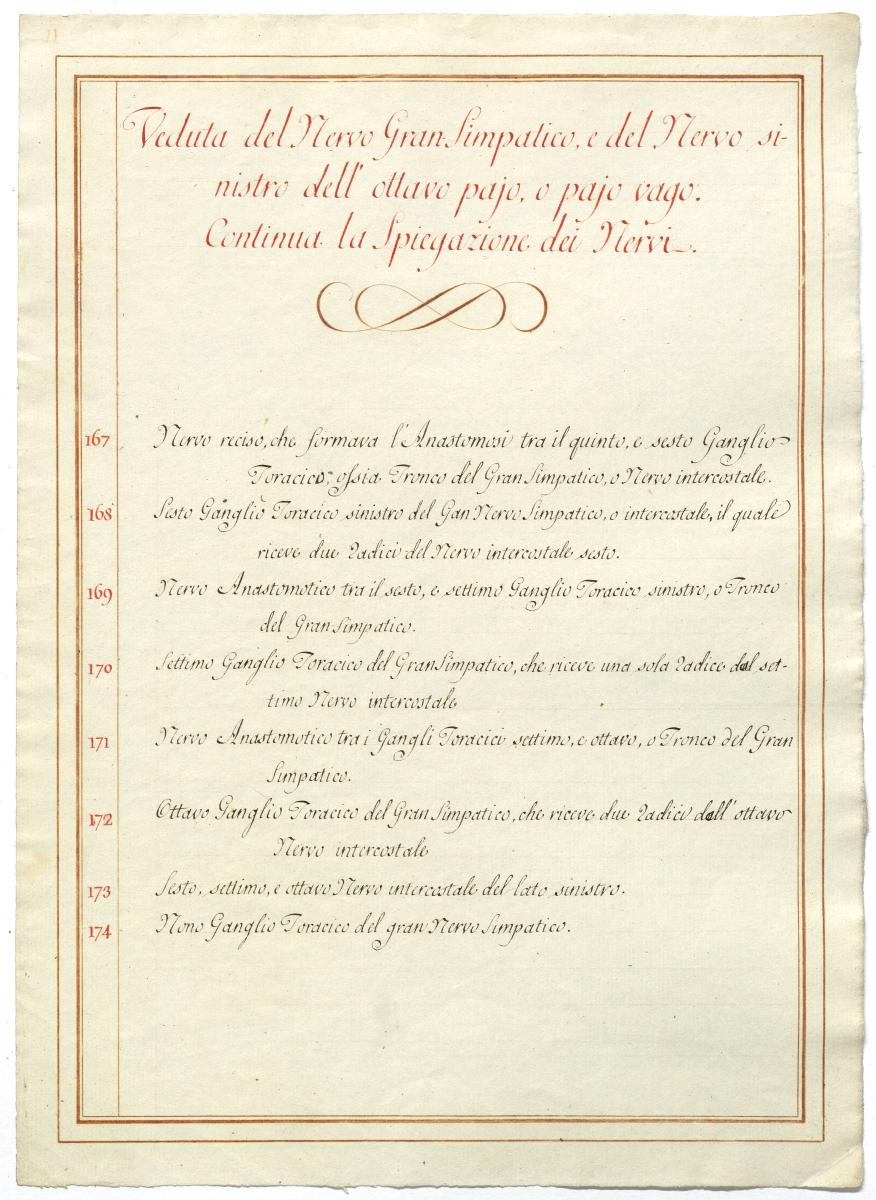 Veduta del Nervo Gran Simpatico, e del Nervo si-
nistro dell' ottavo pajo, o pajo vago.
Continua la Spiegazione dei Nervi.
167 Nervo reciso, che formava l'Anastomosi tra il quinto, e sesto Ganglio
Toracico, ossia Tronco del Gran Simpatico, o Nervo intercostale.
168 Sesto Ganglio Toracico sinistro del Gan Nervo Simpatico, o intercostale, il quale
riceve due Radici del Nervo intercostale sesto.
169 Nervo Anastomotico tra il sesto, e settimo Ganglio Toracico sinistro, o Tronco
del Gran Simpatico.
170 Settimo Ganglio Toracico del Gran Simpatico, che riceve una sola Radice dal set-
timo Nervo intercostale
171 Nervo Anastomotico tra i Gangli Toracici settimo, e ottavo, o Tronco del Gran
Simpatico.
172 Ottavo Ganglio Toracico del Gran Simpatico, che riceve due Radici dall' ottavo
Nervo intercostale
173 Sesto, settimo, e ottavo Nervo intercostale del lato sinistro.
174 Nono Ganglio Toracico del gran Nervo Simpatico.